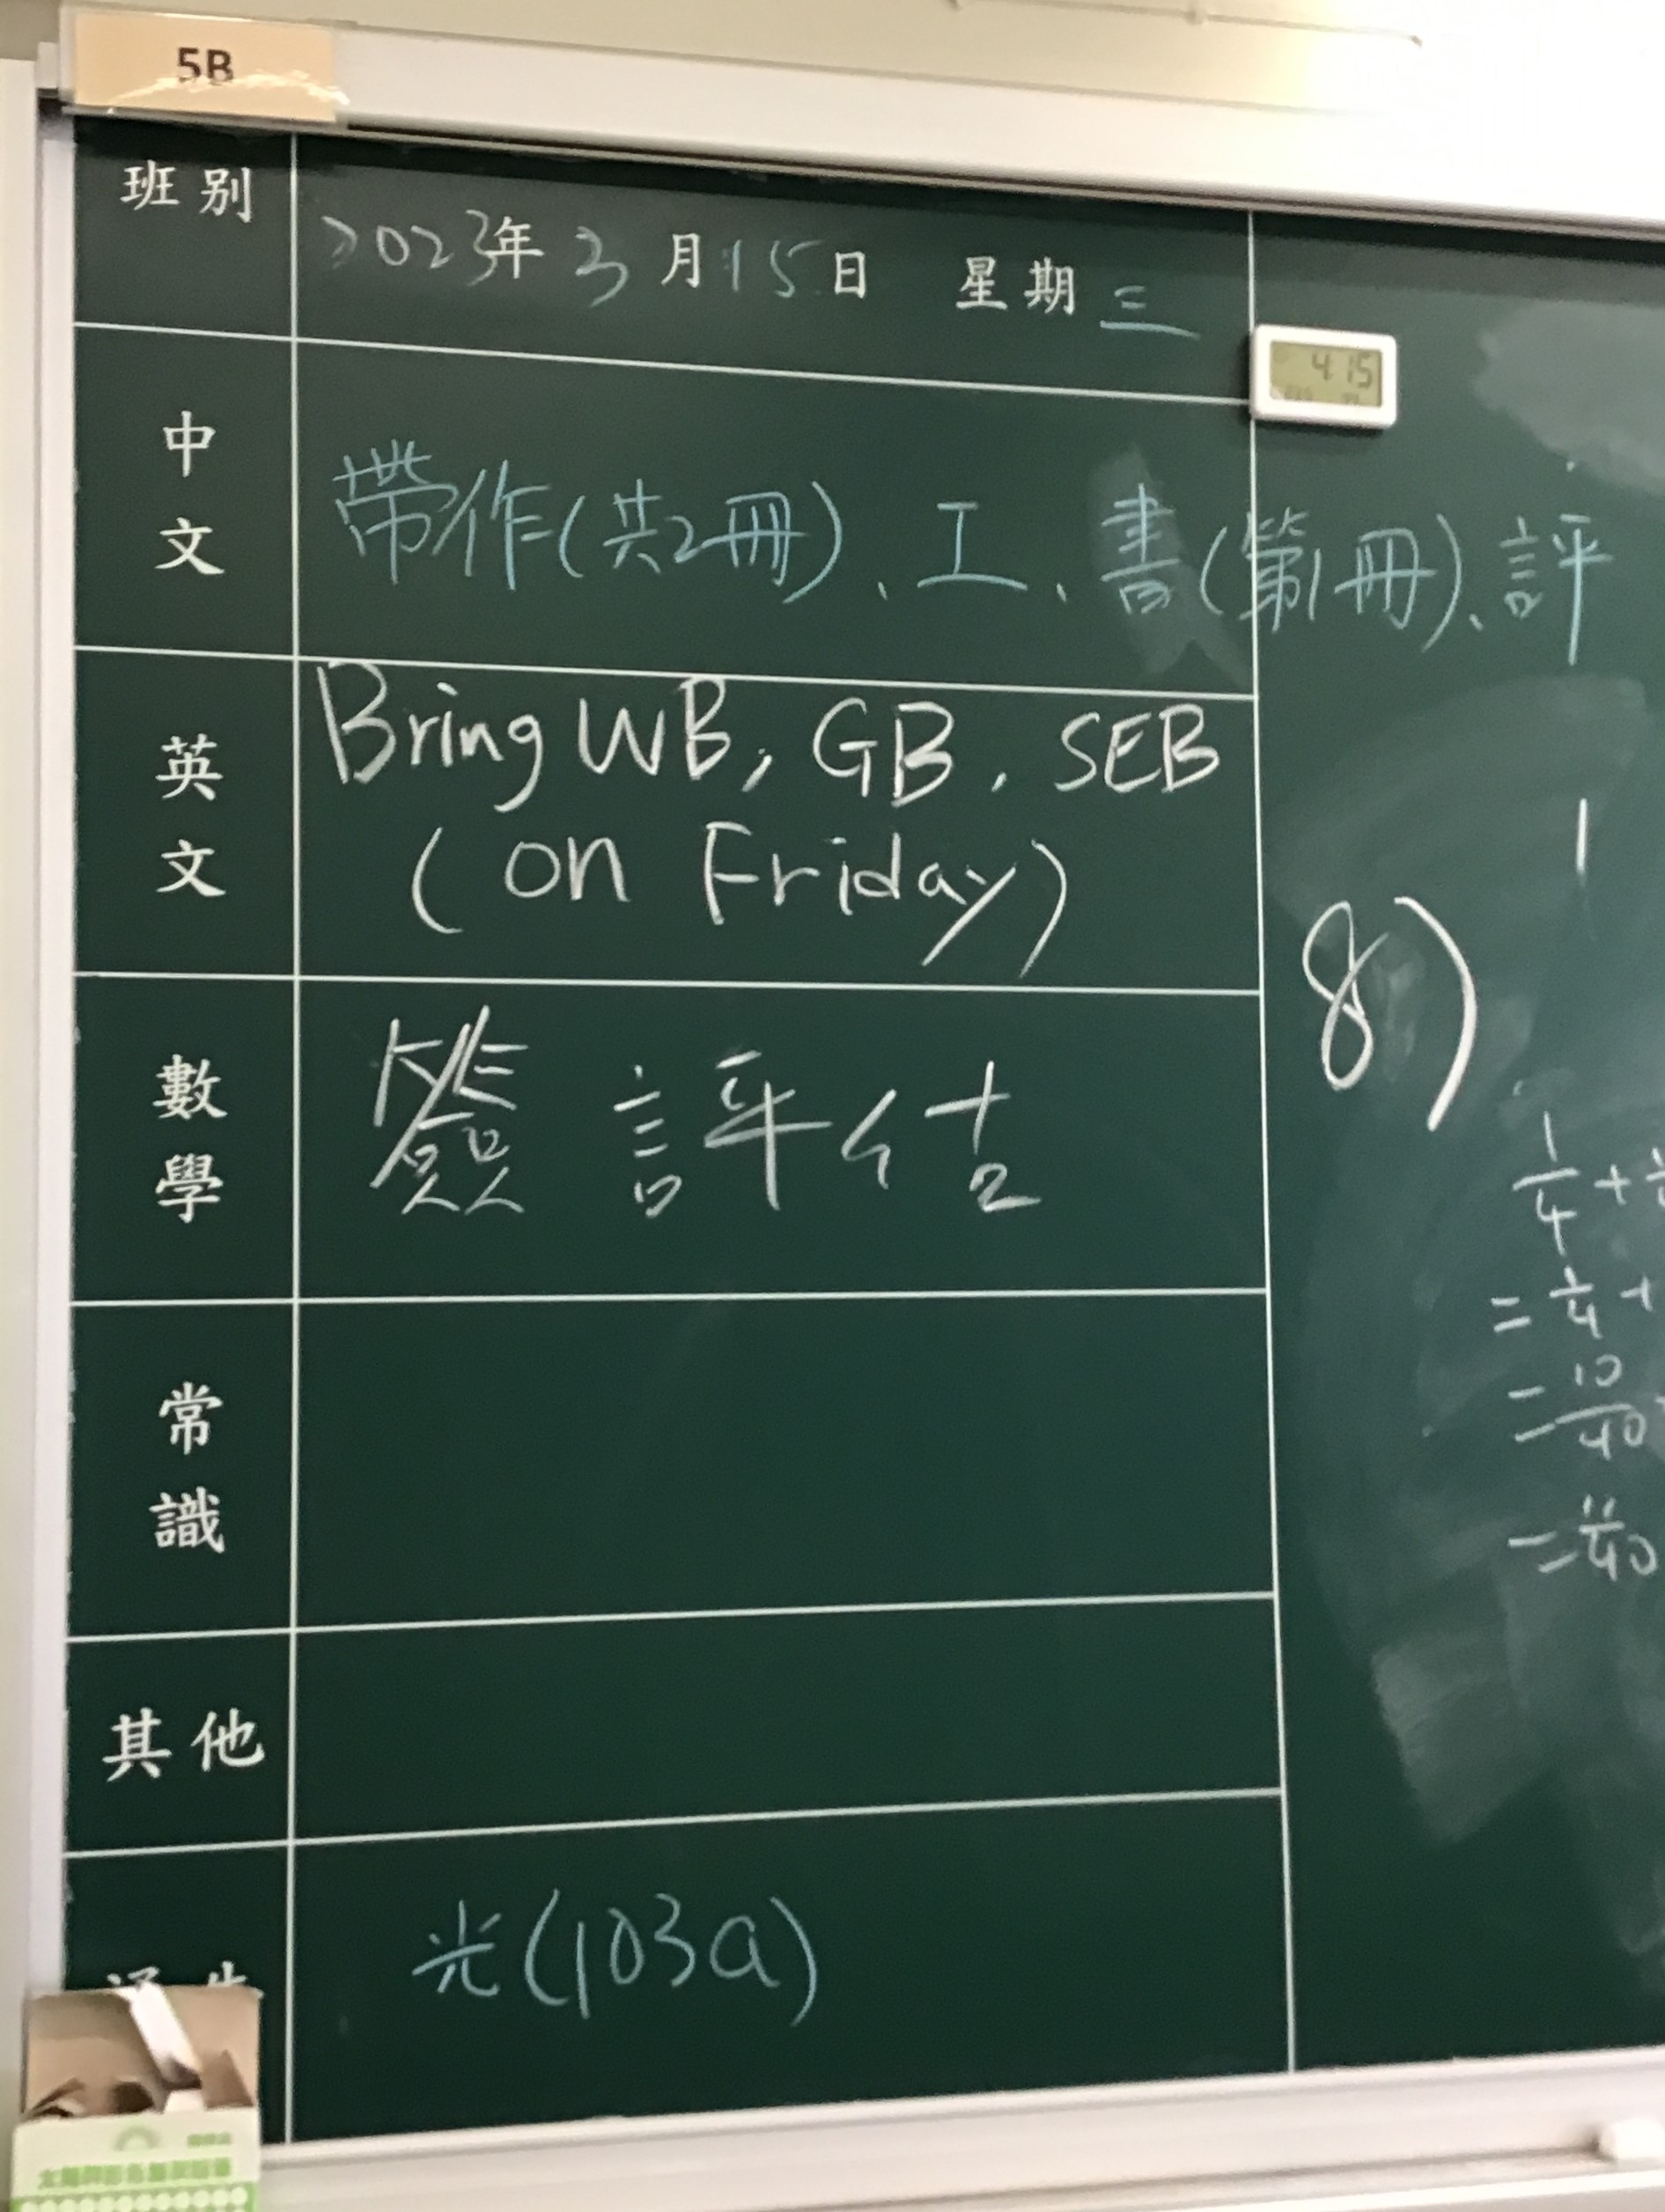 5B
班別
2023年3月15日 星期三
4:15
中文
帶作(共2冊)、工、書(第1冊)、評
英文
Bring WB, GB, SEB
(on Friday)
數學
簽 評估
常識
其他
光(103a)
8)
1/4 +
=
= 10/40
= 11/40